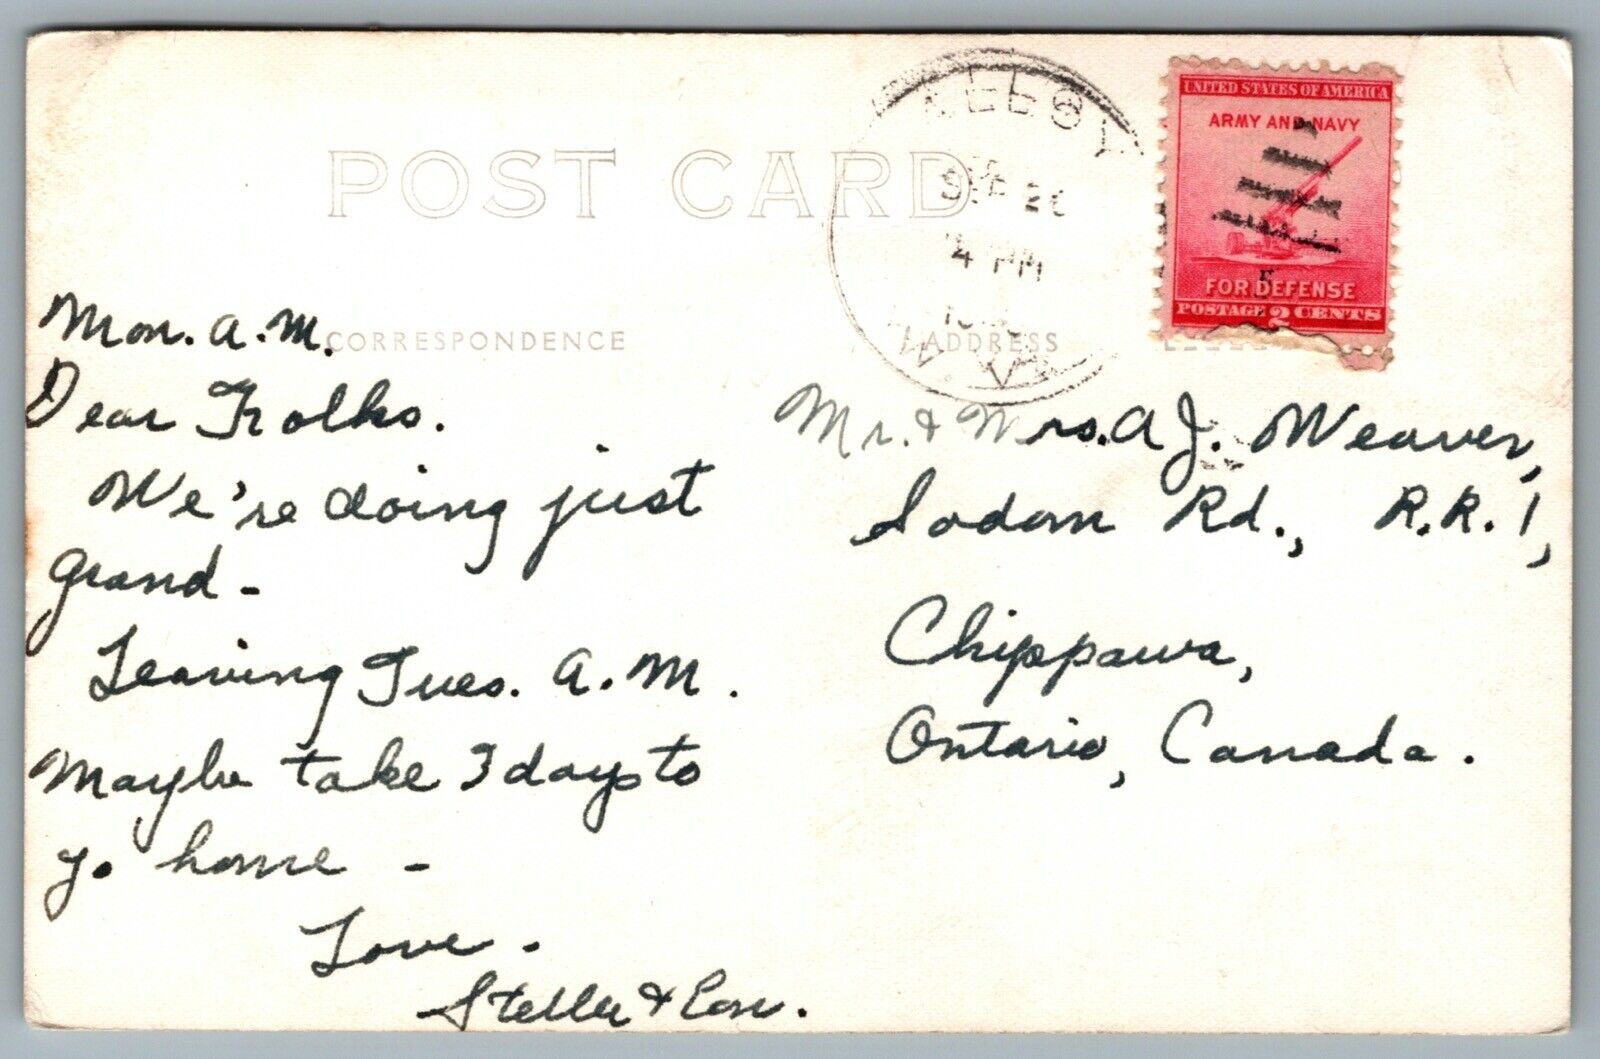 POST CARD
SEP 2
4 PM
UNITED STATES OF AMERICA
ARMY AND NAVY
5
FOR DEFENSE
POSTAGE 2 CENTS
CORRESPONDENCE
ADDRESS
Mon. A.M.
Dear Folks.
We're doing just
grand -
Leaving Tues. A.M.
Maybe take 3 days to
go home -
Love -
Mr. & Mrs. A J. Weaver,
Sodom Rd., R.R. 1,
Chippawa,
Ontario, Canada.